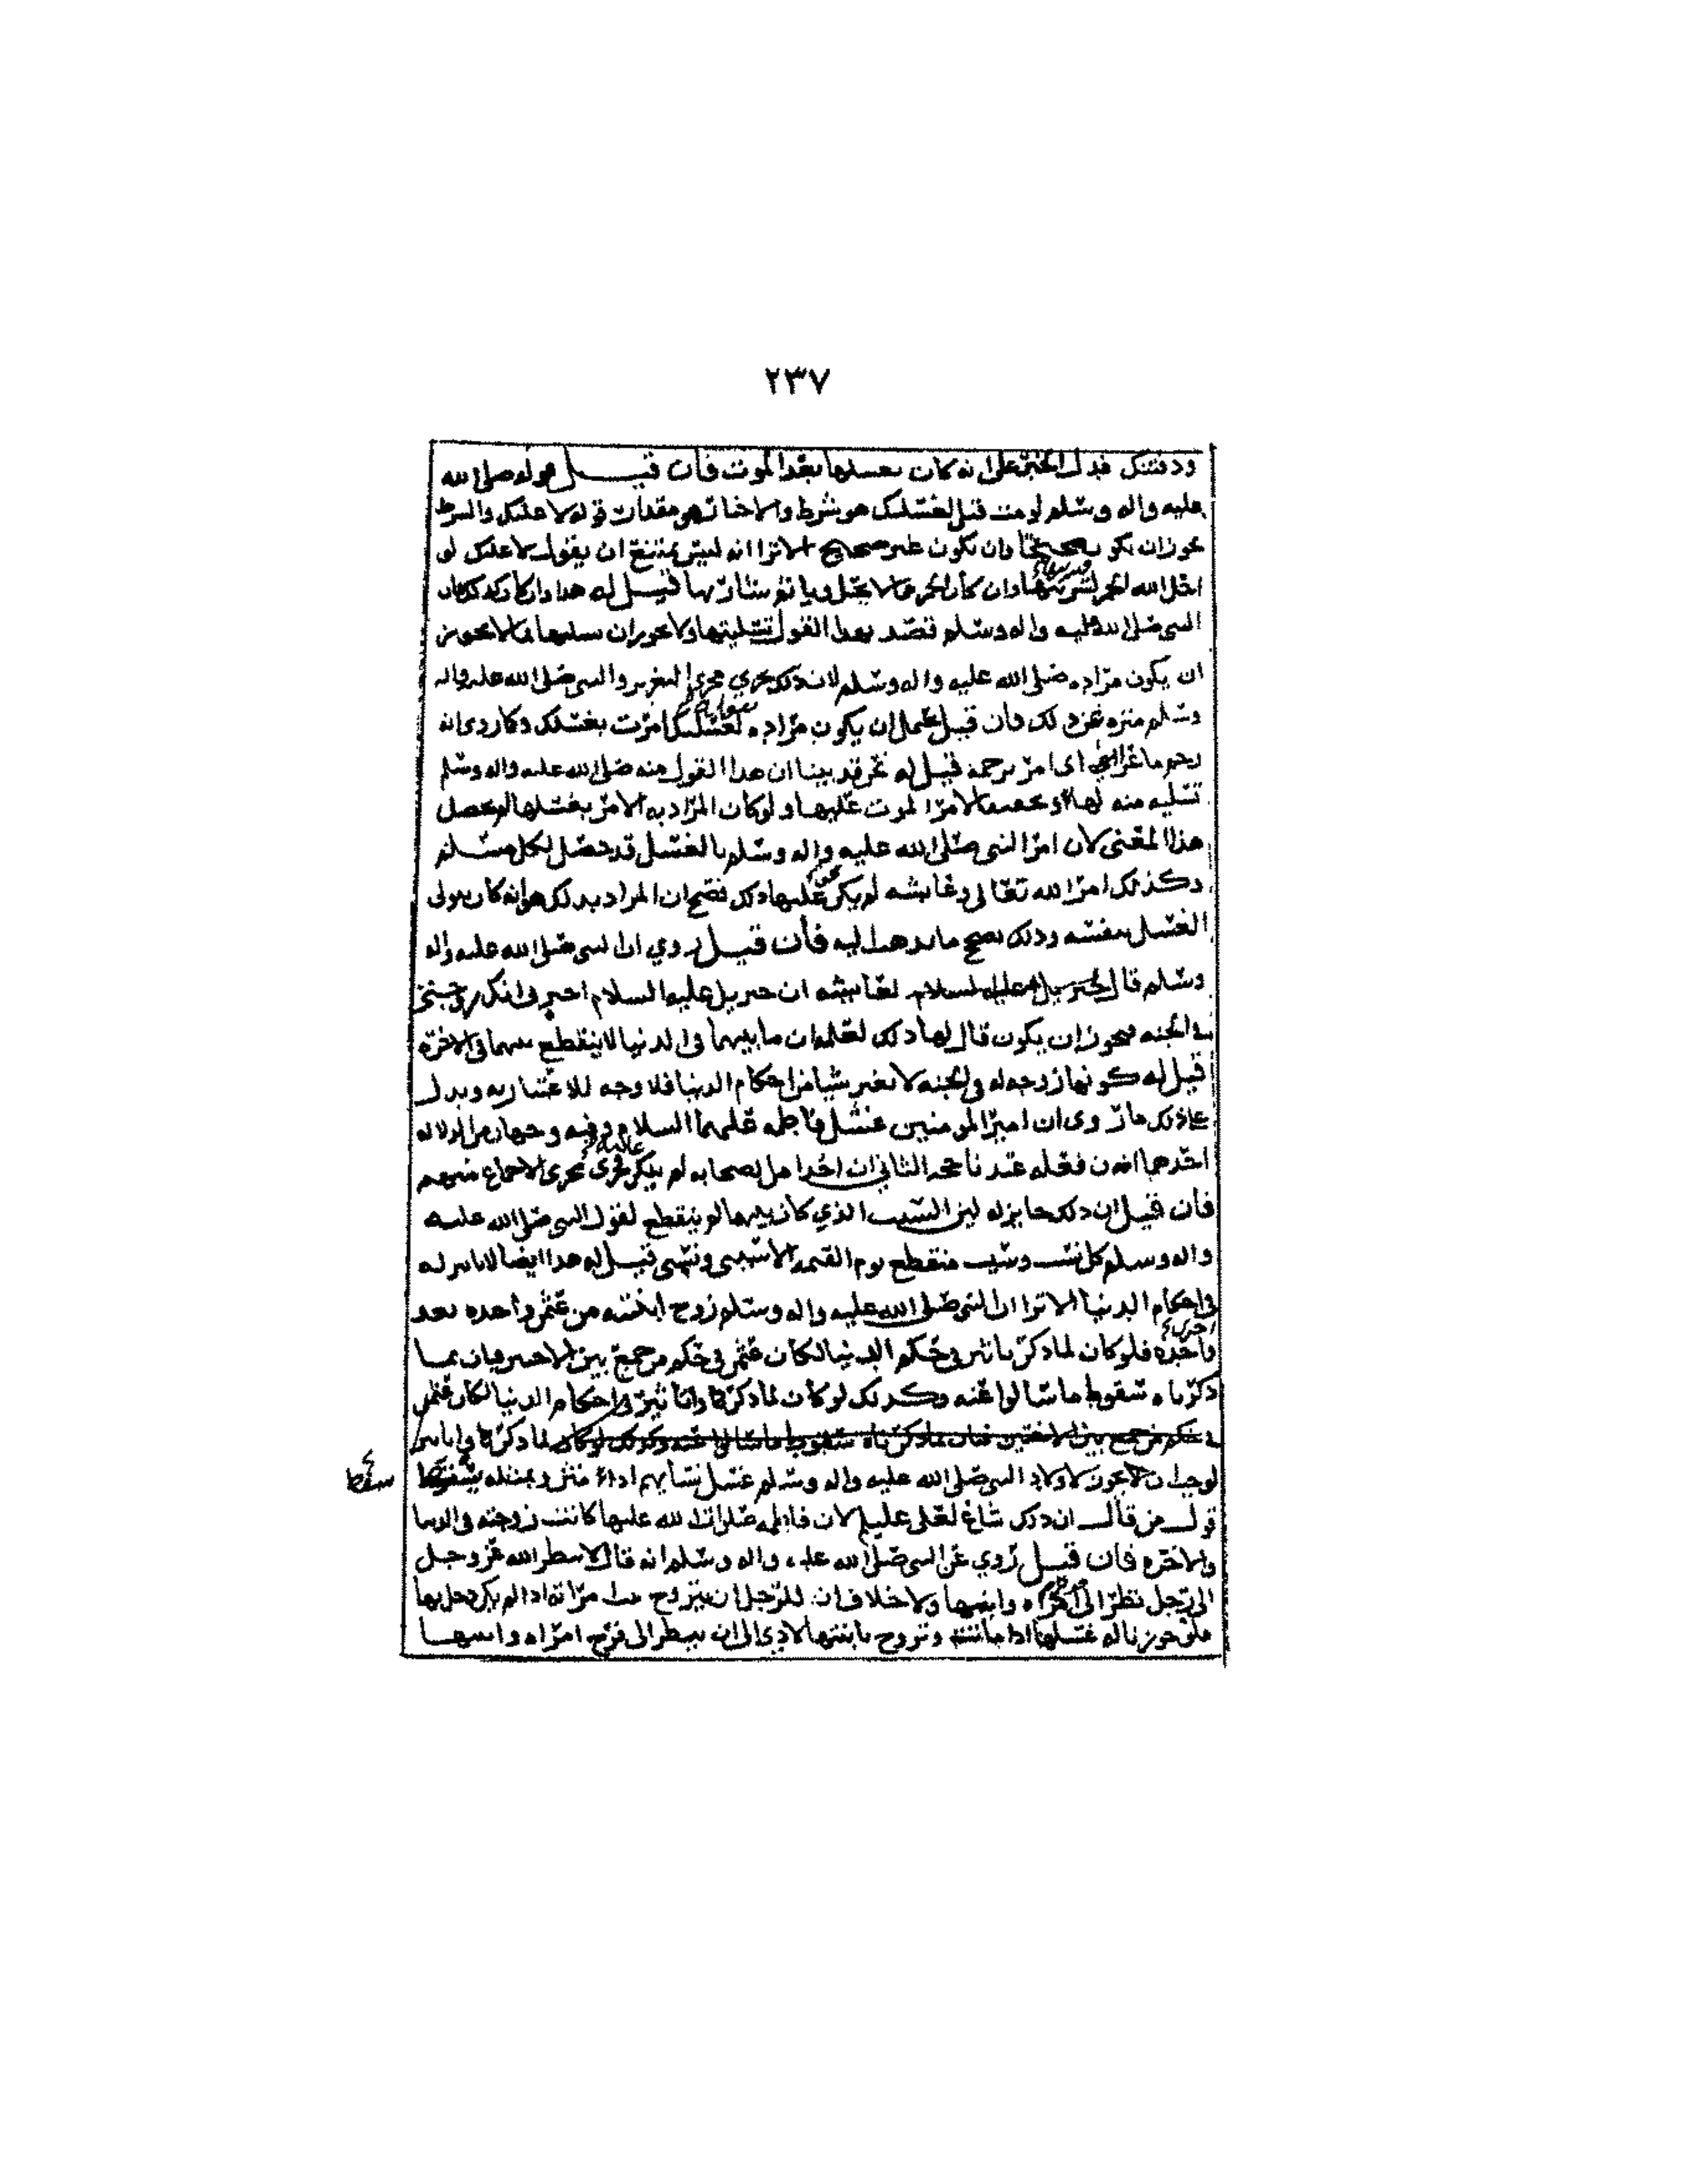 ٢٣٧
ودفنتك فدل الخبر على انه كان يغسلها بعد الموت فان قيل قوله صلى الله
عليه واله وسلم لو مت قبلي لغسلتك هو شرط والاخبار هو مقدات قوله لا عليك والشرط
يجوز ان يكون صحيحا وان يكون غير صحيح الا ترا انه ليس يمتنع ان يقول لا عليك لو
احل الله الخمر لشربتها وان كان الخمر مما لا يحل وياثم شاربها قيل له هذا وان كان كذلك فان
النبي صلى الله عليه واله وسلم قصد بهذا القول تسليتها ولا يجوز ان يسليها بما لا يجوز
ان يكون مراده صلى الله عليه واله وسلم لان ذلك يجري مجرى التغرير والنبي صلى الله عليه واله
وسلم منزه عن ذلك فان قيل يحتمل ان يكون مراده لغسلتك امرت بغسلك وكما روي انه
رجم ماعزا اي امر برجمه قيل له نحن قد بينا ان هذا القول منه صلى الله عليه واله وسلم
تسليه منه لها وتخفيفا لامر الموت عليها ولو كان المراد به الامر بغسلها لم يحصل
هذا المعنى لان امر النبي صلى الله عليه واله وسلم بالغسل قد حصل لكل مسلم
وكذلك امر الله تعالى وعائشه لم يكن عليها ذلك فصح ان المراد بذلك هو انه كان يتولى
الغسل بنفسه وذلك يصحح ما يذهب اليه فأن قيل روي ان النبي صلى الله عليه واله
وسلم قال لعائشه ان جبريل عليه السلام اخبرني انك زوجتي
في الجنه فيجوز ان يكون قال لها ذلك لعلمه ان ما بينهما في الدنيا لا ينقطع بينهما في الاخره
قيل له كونها زوجه له في الجنه لا يغير شيا من احكام الدنيا فلا وجه للاعتبار به ويدل
على ذلك ما روى ان امير المومنين غسل فاطمه عليهما السلام وفيه وجهان من الدلاله
احدهما ان فعله عندنا حجه الثاني ان احدا من الصحابه لم ينكر فجرى مجرى الاجماع منهم
فأن قيل ان ذلك جايز له لان السبب الذي كان بينهما لم ينقطع لقول النبي صلى الله عليه
واله وسلم كل نسب وسبب منقطع يوم القيمه الا سببي ونسبي قيل له هذا ايضا لا تاثير له
في احكام الدنيا الا ترا ان النبي صلى الله عليه واله وسلم زوج ابنته من عثمن واحده بعد
واحده فلو كان لما ذكر تاثير في حكم الدنيا لكان عثمن في حكم من جمع بين الاختين فبان بما
ذكرناه سقوط ما سالوا عنه وكذلك لو كان لما ذكروا تاثير في احكام الدنيا لكان عثمن
في حكم من جمع بين الاختين فبان بما ذكرناه سقوط ما سالوا عنه وكذلك لو كان لما ذكروا تاثير
لوجب ان لا يجوز لاولاد النبي صلى الله عليه واله وسلم غسل نسائهم وبمثله يسقط سقط
قول من قال ان ذلك شاغ لعلي عليلم لان فاطمه صلوات الله عليها كانت زوجته في الدنيا
والاخره فان قيل روي عن النبي صلى الله عليه واله وسلم انه قال لا ينظر الله عز وجل
الى رجل نظر الى فرج امراه وابنتها ولا خلاف ان للرجل ان يتزوج بنت امراته اذا لم يكن دخل بها
فلو جوزنا له غسلها اذا ماتت وتزوج بابنتها لادى الى ان ينظر الى فرج امراه وابنتها